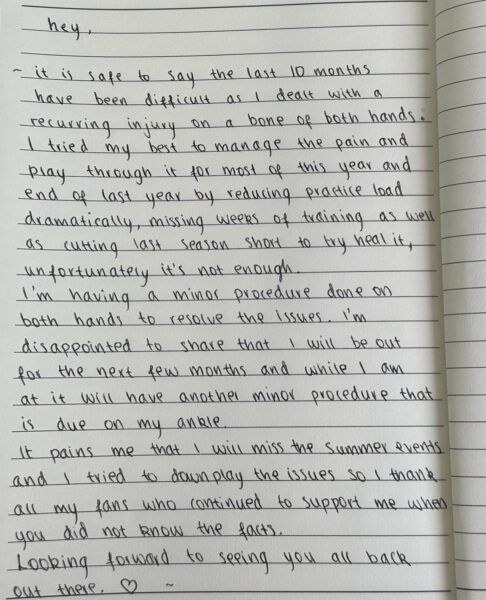 hey,
~ it is safe to say the last 10 months
have been difficult as I dealt with a
recurring injury on a bone of both hands.
I tried my best to manage the pain and
play through it for most of this year and
end of last year by reducing practice load
dramatically, missing weeks of training as well
as cutting last season short to try heal it,
unfortunately it's not enough.
I'm having a minor procedure done on
both hands to resolve the issues. I'm
disappointed to share that I will be out
for the next few months and while I am
at it will have another minor procedure that
is due on my ankle.
It pains me that I will miss the summer events
and I tried to downplay the issues so I thank
all my fans who continued to support me when
you did not know the facts.
Looking forward to seeing you all back
out there. ♡ ~